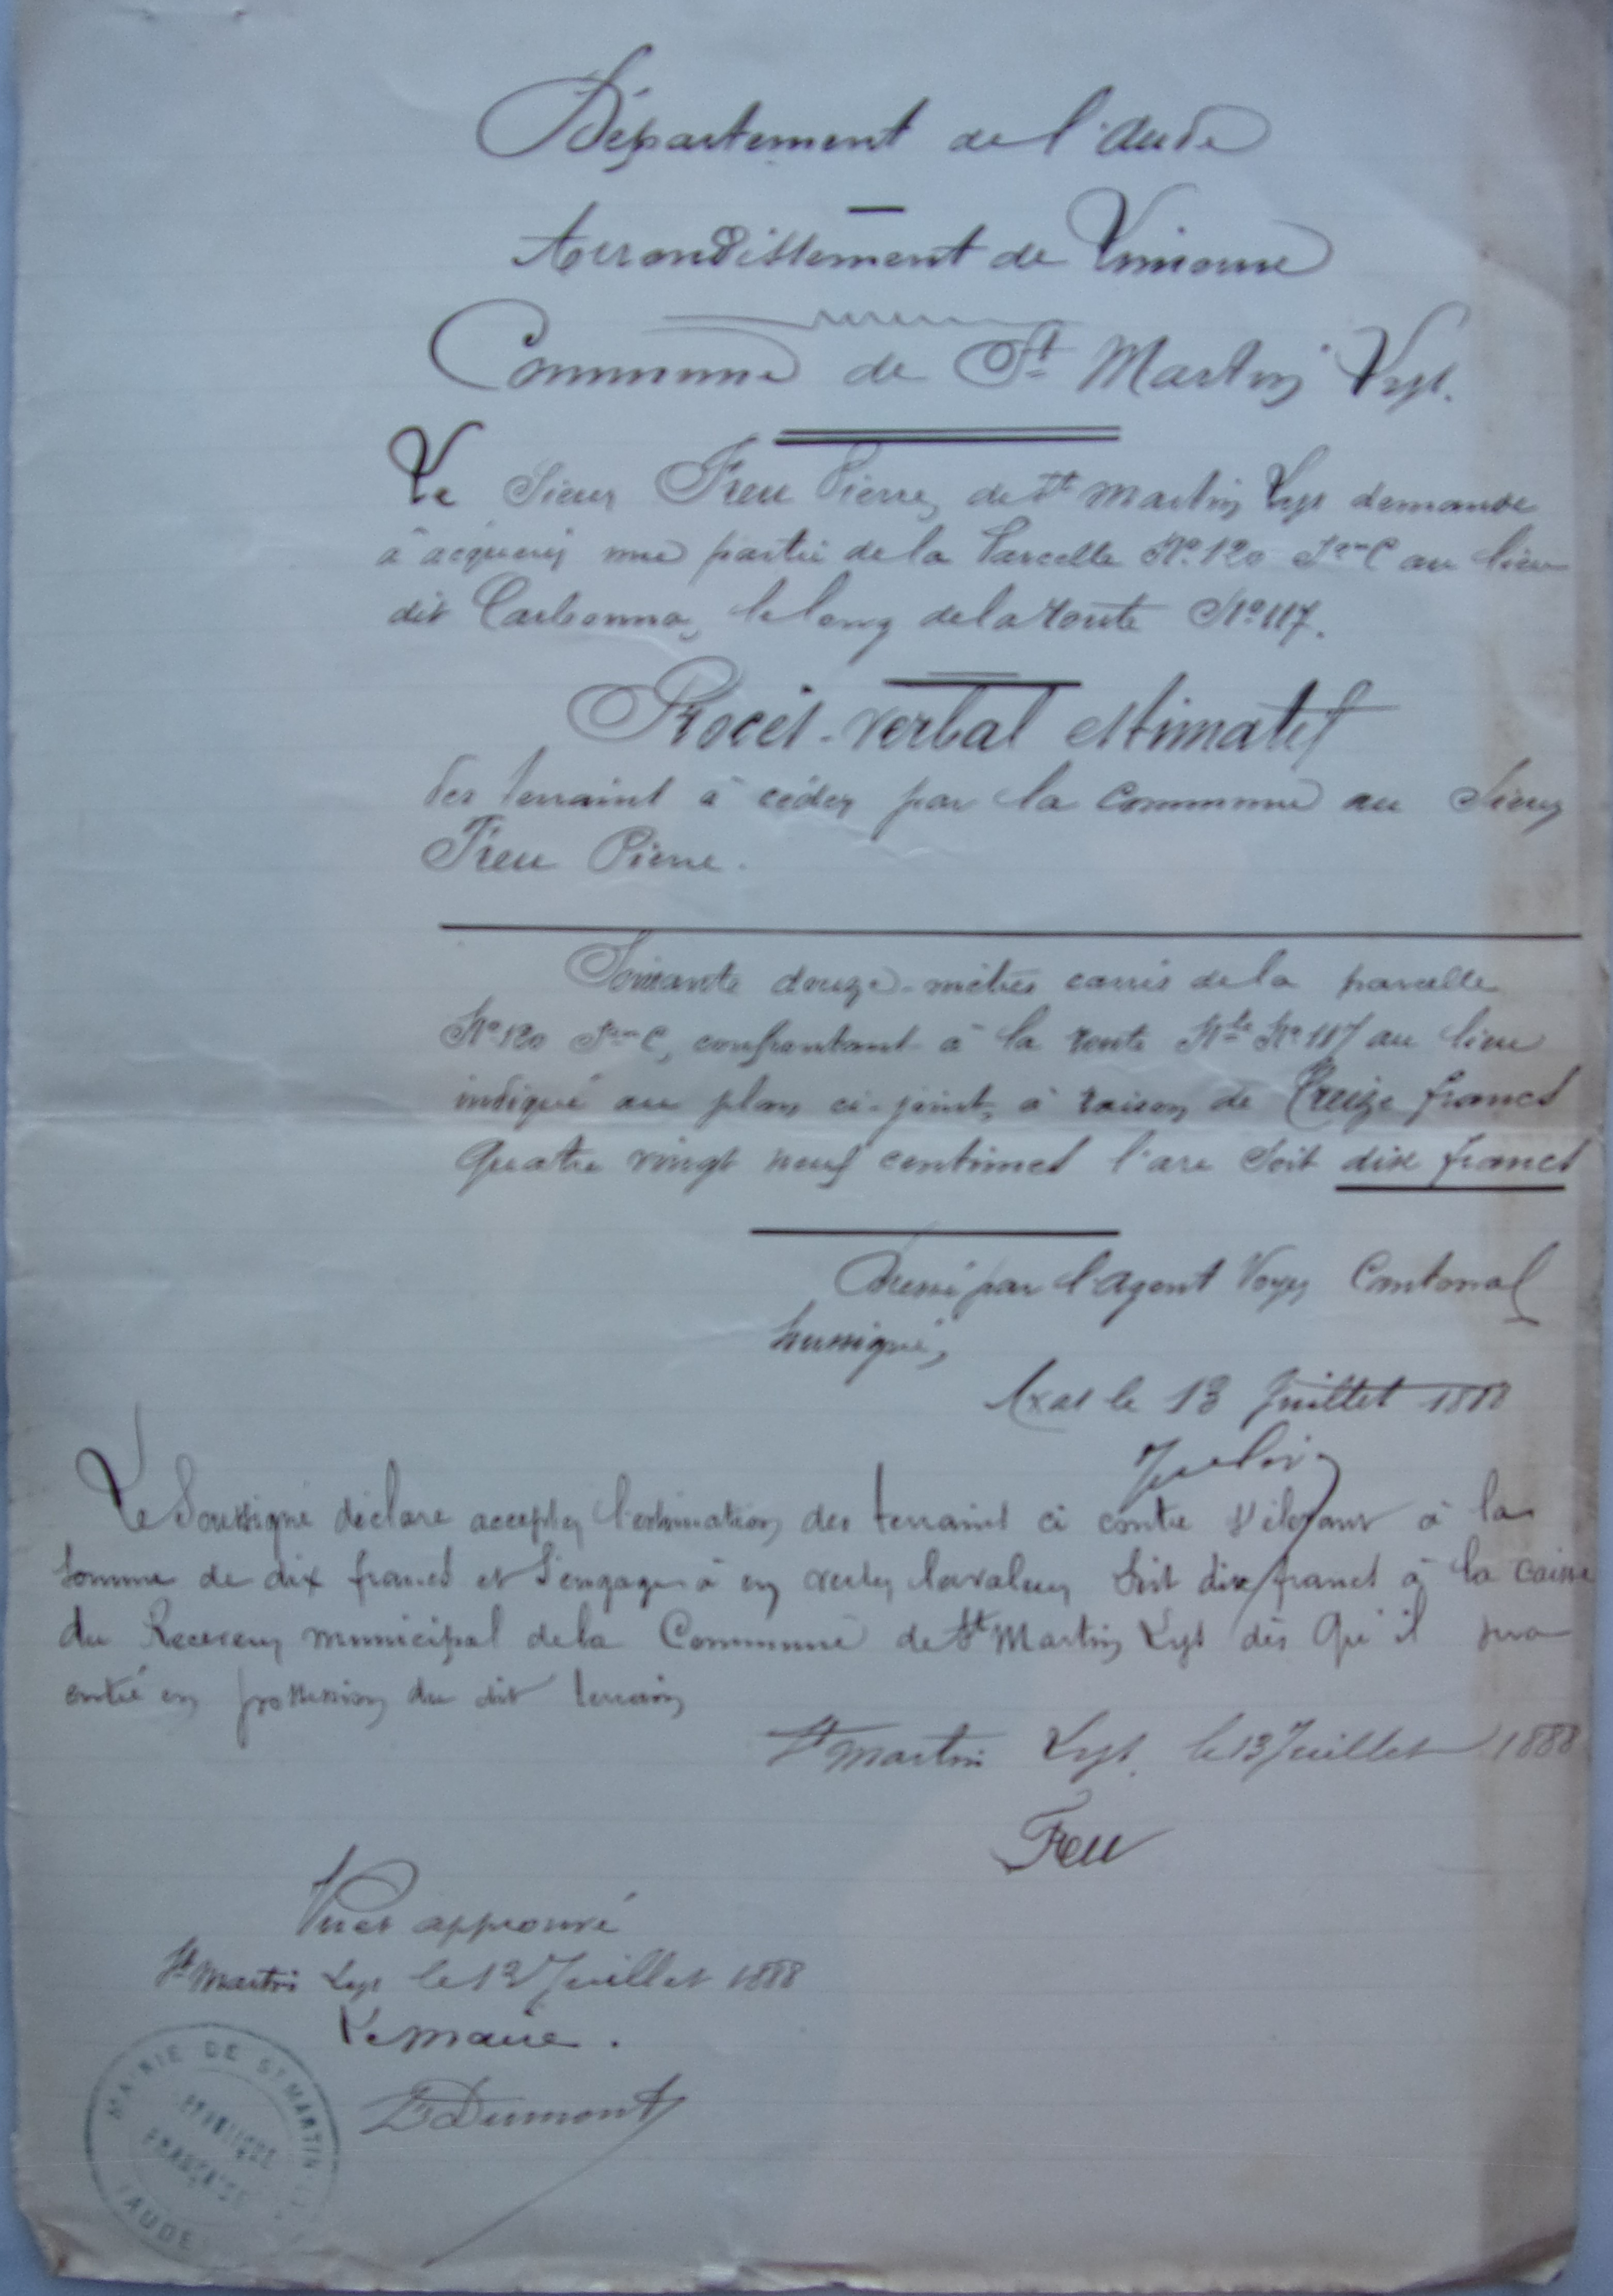 Département de l'Aude
Arrondissement de Limoux
Commune de St Martin Lys.
Le Sieur Freu Pierre, de St Martin Lys demande
à acquérir une partie de la Parcelle No. 120 Son C au lieu
dit Carbonna, le long de la route No 117.
Procès-verbal estimatif
des terrains à céder par la Commune au Sieur
Freu Pierre.
Soixante douze-mètres carrés de la parcelle
No 120 Son C, confrontant à la route Nle No 117 au lieu
indiqué au plan ci-joint, à raison de Treize francs
quatre vingt neuf centimes l'are soit dix francs
Dressé par l'Agent Voyer Cantonal
soussigné,
Axat le 13 Juillet 1888
Le Soussigné déclare accepter l'estimation des terrains ci contre s'élevant à la
somme de dix francs et s'engage à en verser la valeur soit dix francs à la caisse
du Receveur municipal de la Commune de St Martin Lys dès qu'il sera
entré en possession du dit terrain
St Martin Lys. le 13 Juillet 1888
Freu
Vu et approuvé
St Martin Lys le 13 Juillet 1888
Le maire.
Dumont
MAIRIE DE ST MARTIN
RÉPUBLIQUE
FRANÇAISE
AUDE